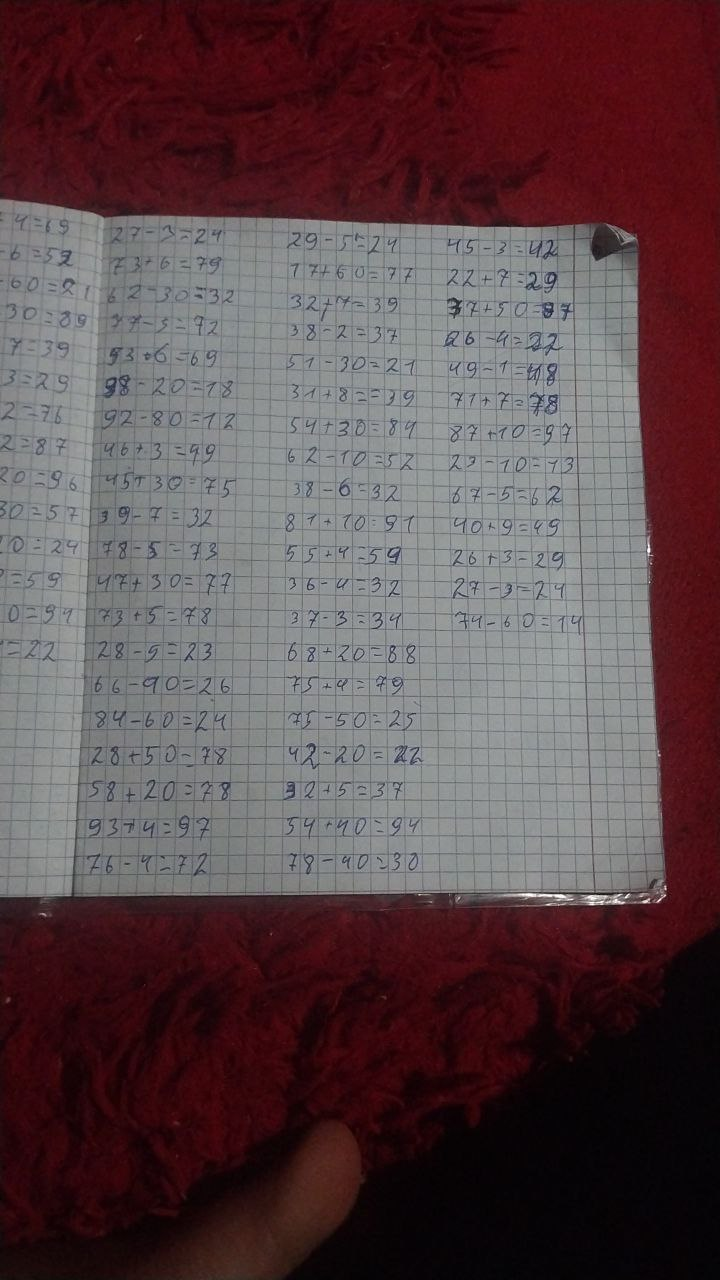 4=69
-6=52
-60=21
30=89
7=39
3=29
2=76
2=87
20=96
30=57
20=24
=59
0=94
=22
27-3=24
73+6=79
62-30=32
77-5=72
53+6=69
98-20=18
92-80=12
46+3=99
45+30=75
39-7=32
78-5=73
47+30=77
73+5=78
28-5=23
66-40=26
84-60=24
28+50=78
58+20=78
93+4=97
76-4=72
29-5=24
17+60=77
32+7=39
38-2=37
51-30=21
31+8==39
54+30=84
62-10=52
38-6=32
81+10=91
55+4=59
36-4=32
37-3=34
68+20=88
75+4=79
75-50=25
42-20=22
32+5=37
54+40=94
78-40=30
45-3=42
22+7=29
37+50=87
26-4=22
49-1=48
71+7=78
87+10=97
23-10=13
67-5=62
40+9=49
26+3=29
27-3=24
74-60=14